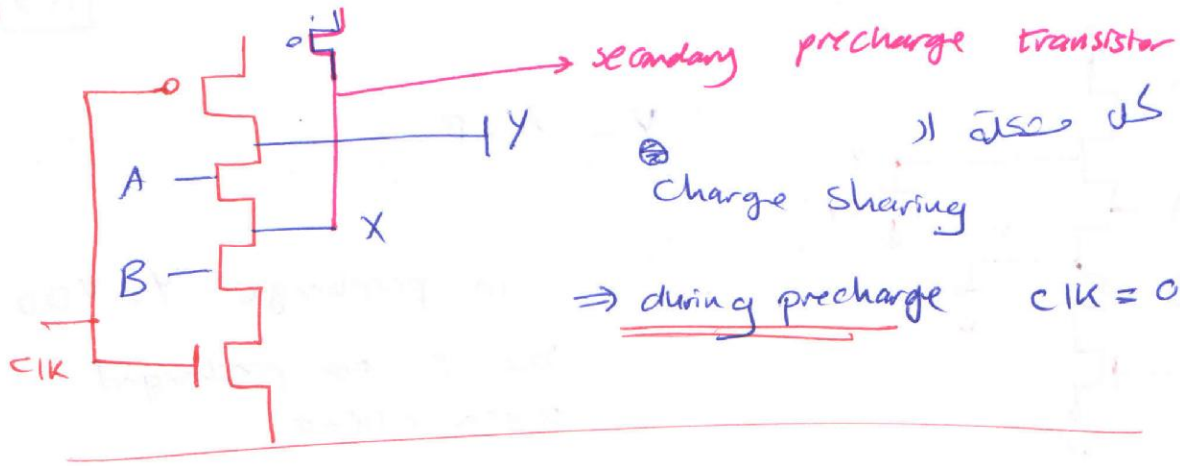 secondary precharge transistor
Y
A
X
B
CLK
حل مشكلة ال
charge sharing
⇒ during precharge CLK = 0